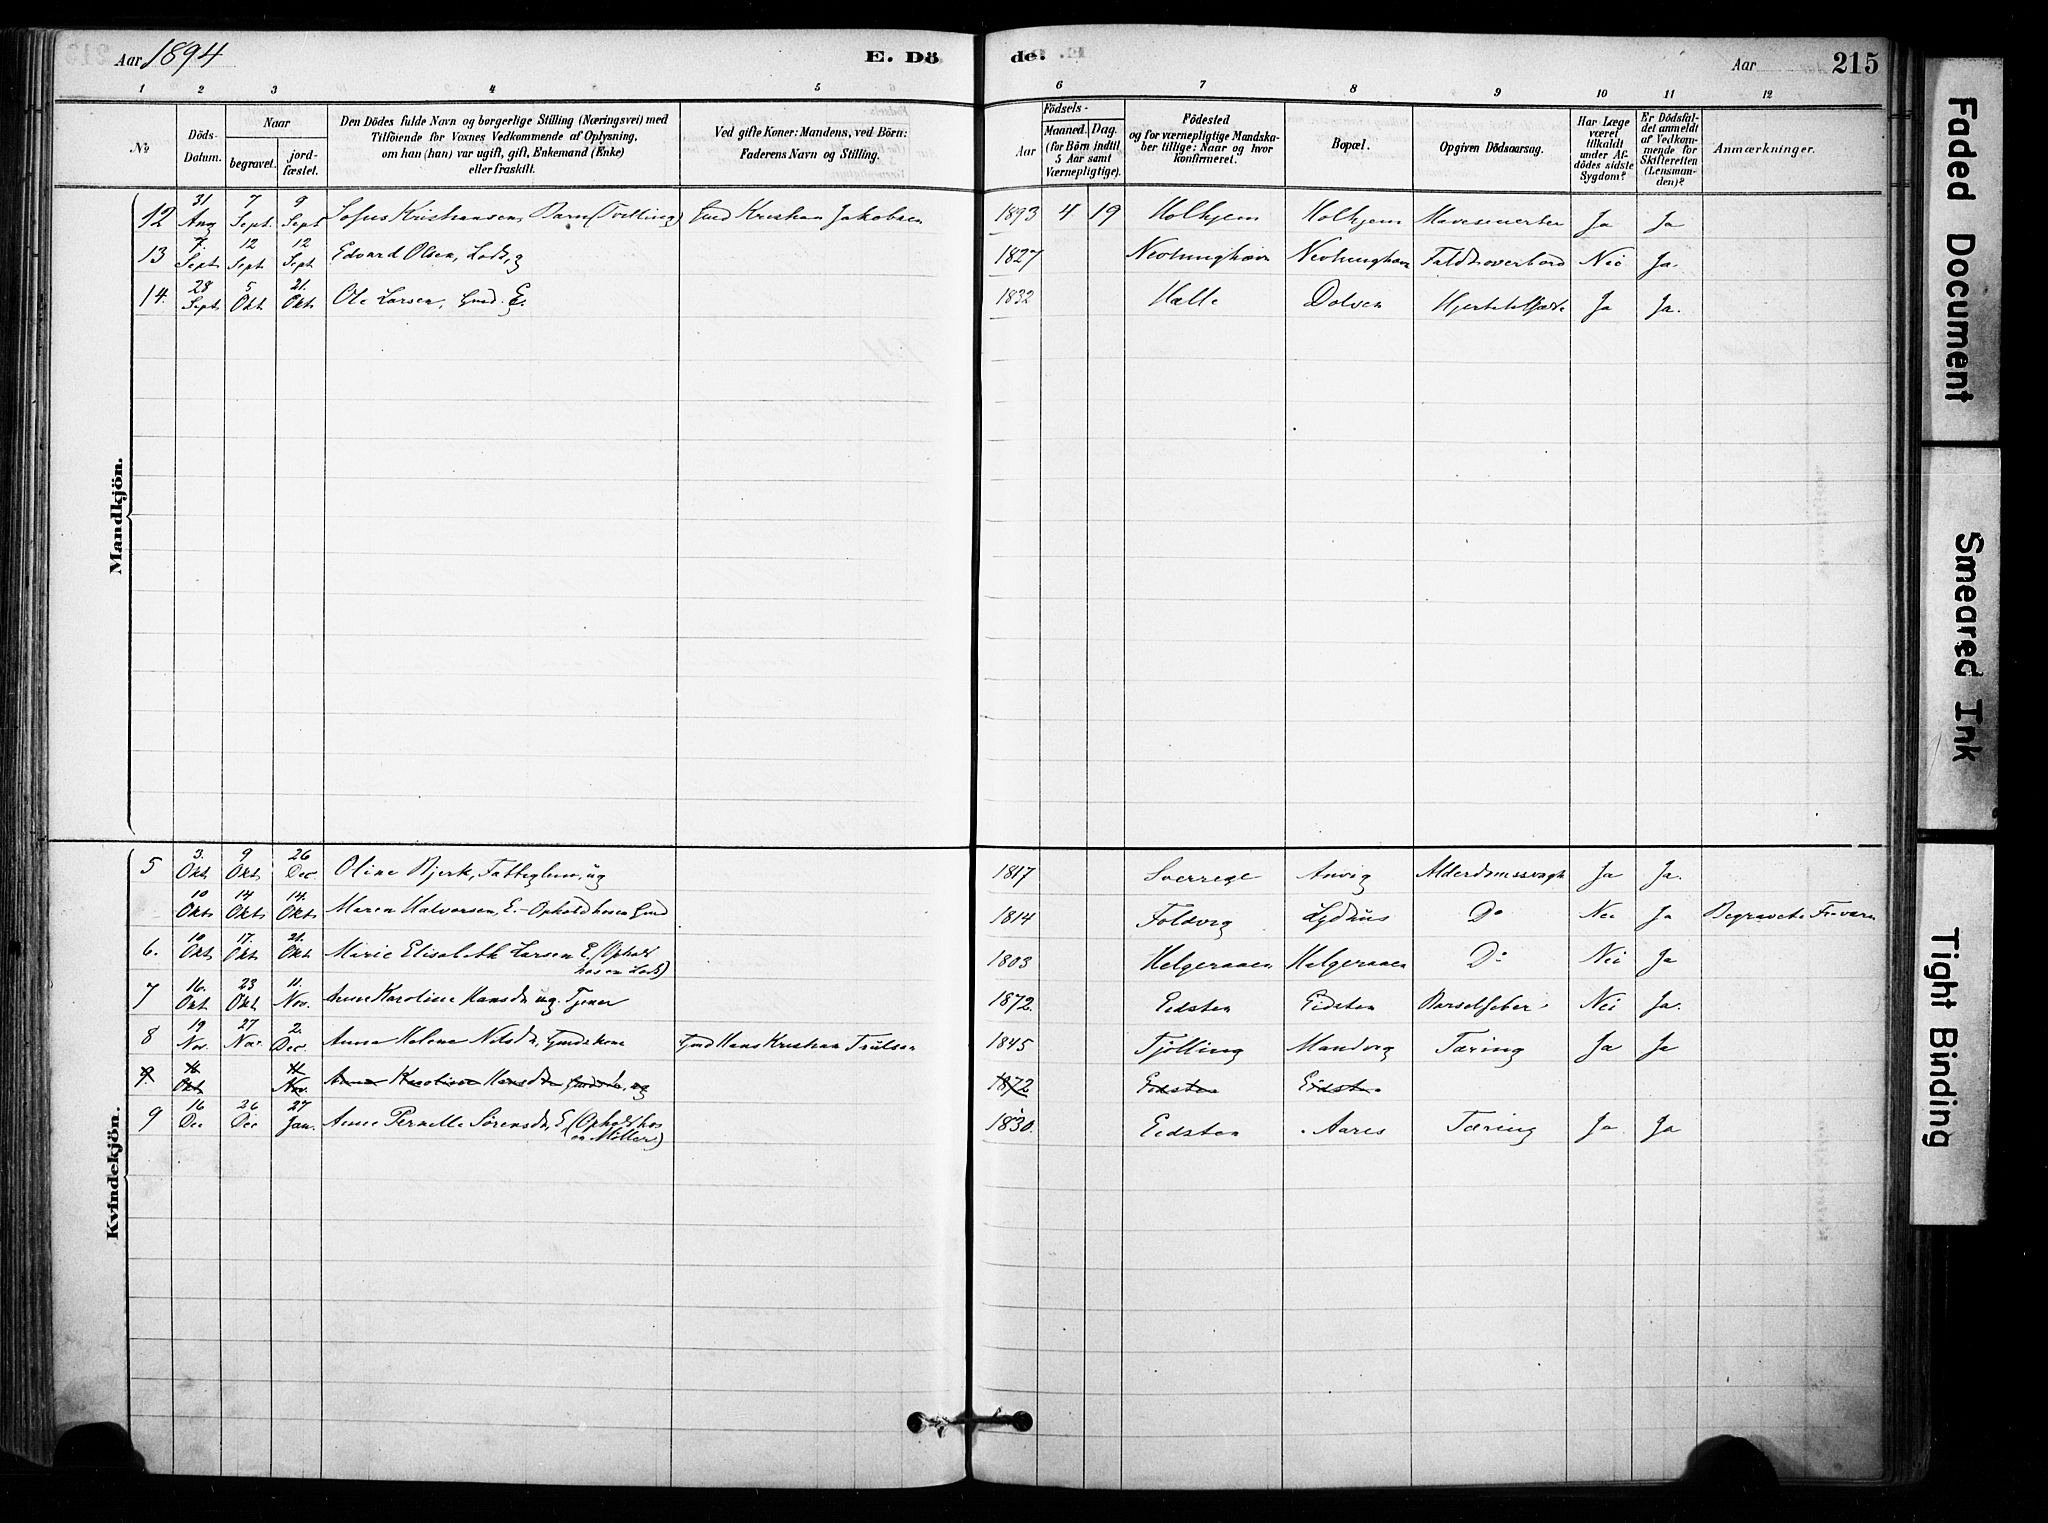 Aar 1894 E. Dö de. Aar 215
1 2 3 4 5 6 7 8 9 10 11 12
No. Döds-Datum. Naar begravet. jordfæstet. Den Dödes fulde Navn og borgerlige Stilling (Næringsvei) med Tilföiende for Voxnes Vedkommende af Oplysning, om han (hun) var ugift, gift, Enkemand (Enke) eller fraskilt. Ved gifte Koner: Mandens, ved Börn: Faderens Navn og Stilling. Födsels- Aar Maaned. Dag. (for Börn indtil 5 Aar samt Værnepligtige). Födested og for værnepligtige Mandskaber tillige: Naar og hvor konfirmeret. Bopæl. Opgiven Dödsaarsag. Har Læge været tilkaldt under Afdödes sidste Sygdom? Er Dödsfaldet anmeldt af Vedkommende for Skifteretten (Lensmanden)? Anmærkninger.
Mandkjön.
12 31 Aug 7 Sept. 9 Sept Sofus Kristiansen Barn (Tvilling) Gmd Kristian Jakobsen 1893 4 19 Holhjem Holhjem Ja Ja
13 7. Sept 12 Sept 12 Sept Edvard Olsen, Lods, g 1827 Nevlunghavn Nevlunghavn Faldt overbord Nei Ja.
14. 28 Sept 5 Okt 21. Okt Ole Larsen, Gmd. E. 1832 Halle Dolven Ja Ja.
Kvindekjön.
5 3. Okt 9 Okt 26 Dec Oline Bjerk, Fatteglem, ug 1817 Sverrege Anvig Alderdomssvagh Ja Ja.
10 Okt 14 Okt 14. Okt Maren Halvorsen, E. Ophold hos en Gmd 1814 Foldvig Lydhus Do Nei Ja Begravet i Fr.værn
6. 10 Okt 17. Okt 21. Okt Marie Elisabeth Larsen E. (Ophold hos en Lods) 1803 Helgeraaen Helgeraaen Do Nei Ja
7 16. Okt 23 Okt 11. Nov. Anne Karoline Hansdr ug. Tjener 1872. Eidsten Eidsten Barselfeber Nei Ja.
8 19 Nov. 27 Nov. 2. Dec. Anna Helene Nilsdr, Gmdskone Gmd Hans Kristian Trulsen 1845 Tjölling Mandvig Tæring Ja Ja
9. Okt 11 Nov. Anne Karoline Hansdr, ug 1872 Eidsten Eidsten
9 16 Dec 26 Dec 27 Jan. Anne Pernelle Sörensdr, E (Ophold hos en Möller) 1830. Eidsten Aares Tæring Ja Ja
Faded Document
Smeared Ink
Tight Binding